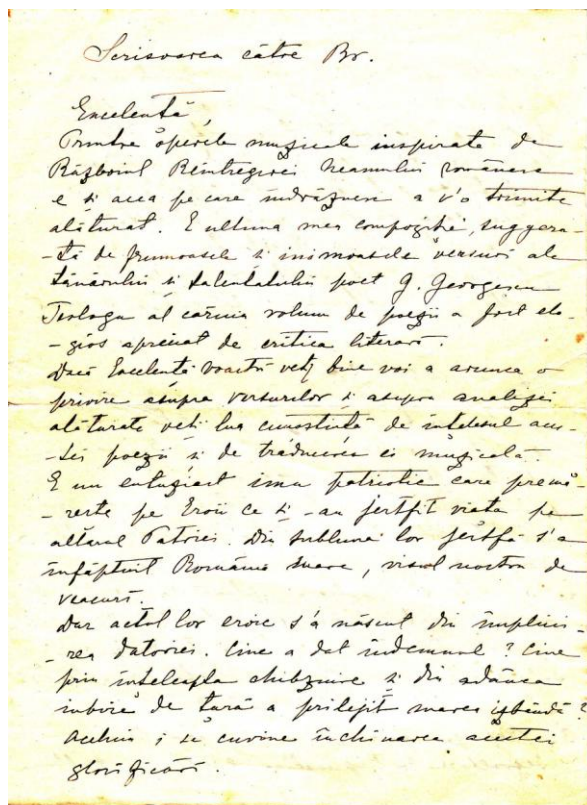 Scrisoarea către Br.
Excelență,
Printre operele muzicale inspirate de
Războiul Reîntregirei Neamului românesc
e și acea pe care îndrăznesc a v'o trimite
alăturat. E ultima mea compoziție, suggera-
-tă de frumoasele și inimoasele versuri ale
tânărului și talentatului poet G. Georgescu
Teologu al căruia volum de poezii a fost elo-
-gios apreciat de critica literară.
Dacă Excelența voastră veți bine voi a arunca o
privire asupra versurilor și asupra analizei
alăturate veți lua cunoștință de înțelesul aces-
-tei poezii și de traducerea ei muzicală.
E un entuziast imn patriotic care premă-
-rește pe Eroii ce și-au jertfit viața pe
altarul Patriei. Din sublima lor jertfă s'a
înfăptuit România mare, visul nostru de
veacuri.
Dar actul lor eroic s'a născut din împlini-
-rea datoriei. Cine a dat îndemnul? Cine
prin înțeleapta chibzuire și din adânca
iubire de țară a prilejit marea izbândă?
Acelui i se cuvine închinarea acestei
glorificări.